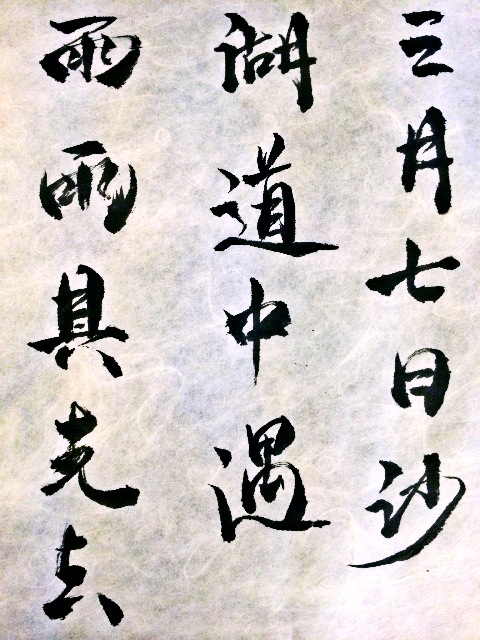 三月七日沙
湖道中遇
雨雨具先去